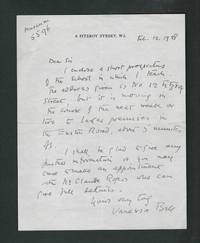 8 FITZROY STREET, W.1.
Feb. 12, 1938
Dear Sir
I enclose a short prospectus
of the School in which I teach
the address given is No 12 Fitzroy
Street but it is moving in
the course of the next week or
two to larger premises in
the Euston Road, about 3 minutes
off.
I shall be glad to give any
further information or you may
care to make an appointment
with Mr Claude Rogers who can
give full details.
Yours very truly
Vanessa Bell